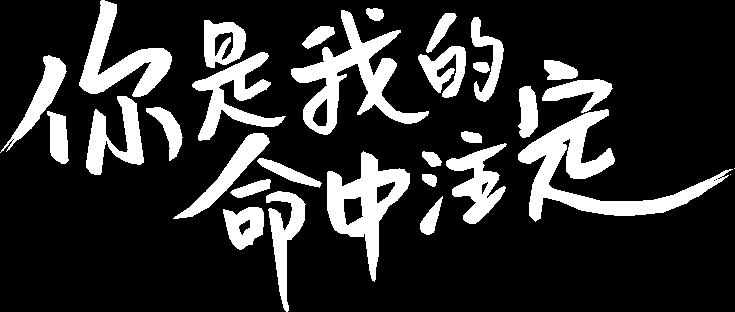 你是我的
命中注定